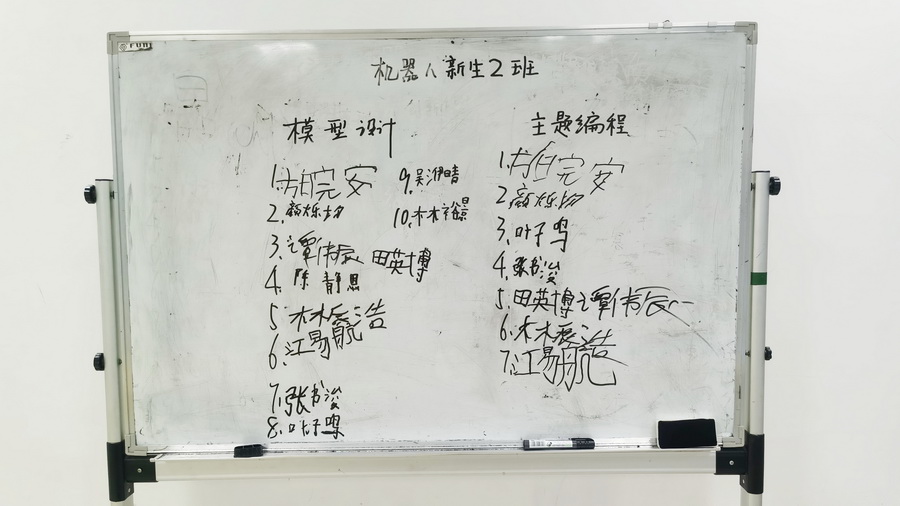 机器人新生2班
模型设计
1.柏皖安
2.颜烁均
3.谭伟辰 田英博
4.陈静思
5.林辰浩
6.江易航
7.张书浚
8.叶子鸣
9.吴沂晴
10.林裕景
主题编程
1.柏皖安
2.颜烁均
3.叶子鸣
4.张书浚
5.田英博 谭伟辰
6.林辰浩
7.江易航